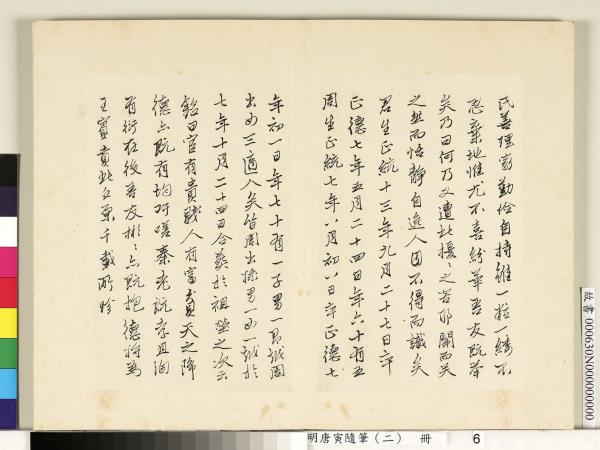 氏善理家勤儉自持雖一粒一縷不
忍棄地惟尤不喜紛華吾友既舉
矣乃曰何乃又遭此擾〻之苦耶聞而笑
之然而恬靜自逸人固不得而識矣
君生正統十三年九月二十七日卒
正德七年五月二十四日年六十有五
周生正統七年八月初八日卒正德七
年初一日年七十有一子男一曰周
出女三適人矣皆周出孫男一女一於
七年十月二十四日合葬於祖塋之次
銘曰官有貴賤人有富貧天之降
德亦既有均吁嗟秦老既孝且洵
有衍在後吾友彬〻亦既抱德將為
王賓賁此原千載所珍
故書 000630N000000000
明唐寅隨筆（二） 冊 6